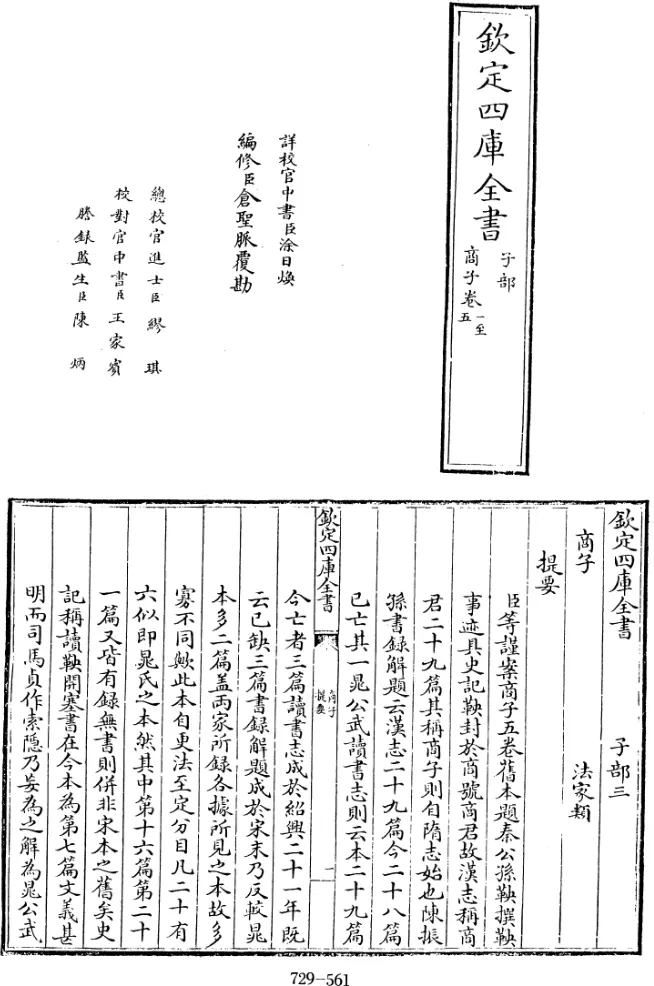 欽定四庫全書
子部
商子卷一至五
詳校官中書臣涂日煥
編修臣倉聖脈覆勘
總校官進士臣繆琪
校對官中書臣王家賓
謄錄監生臣陳炳
欽定四庫全書 子部三
商子 法家類
提要
臣等謹案商子五卷舊本題秦公孫鞅撰鞅
事迹具史記鞅封於商號商君故漢志稱商
君二十九篇其稱商子則自隋志始也陳振
孫書録解題云漢志二十九篇今二十八篇
已亡其一晁公武讀書志則云本二十九篇
欽定四庫全書 商子提要 一
今亡者三篇讀書志成於紹興二十一年既
云已缺三篇書録解題成於宋末乃反較晁
本多二篇盖兩家所録各據所見之本故多
寡不同歟此本自更法至定分目凡二十有
六似即晁氏之本然其中第十六篇第二十
一篇又皆有録無書則併非宋本之舊矣史
記稱讀鞅開塞書在今本為第七篇文義甚
明而司馬貞作索隱乃妄為之解為晁公武
729-561